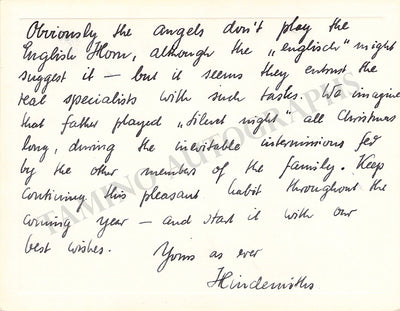 Obviously the angels don't play the
English Horn, although the „englisch" might
suggest it – but it seems they entrust the
real specialists with such tasks. We imagine
that father played „Silent night" all Christmas
long, during the inevitable intermissions fed
by the other member of the family. Keep
continuing this pleasant habit throughout the
coming year – and start it with our
best wishes. Yours as ever
Hindemiths
TAMINO AUTOGRAPHS